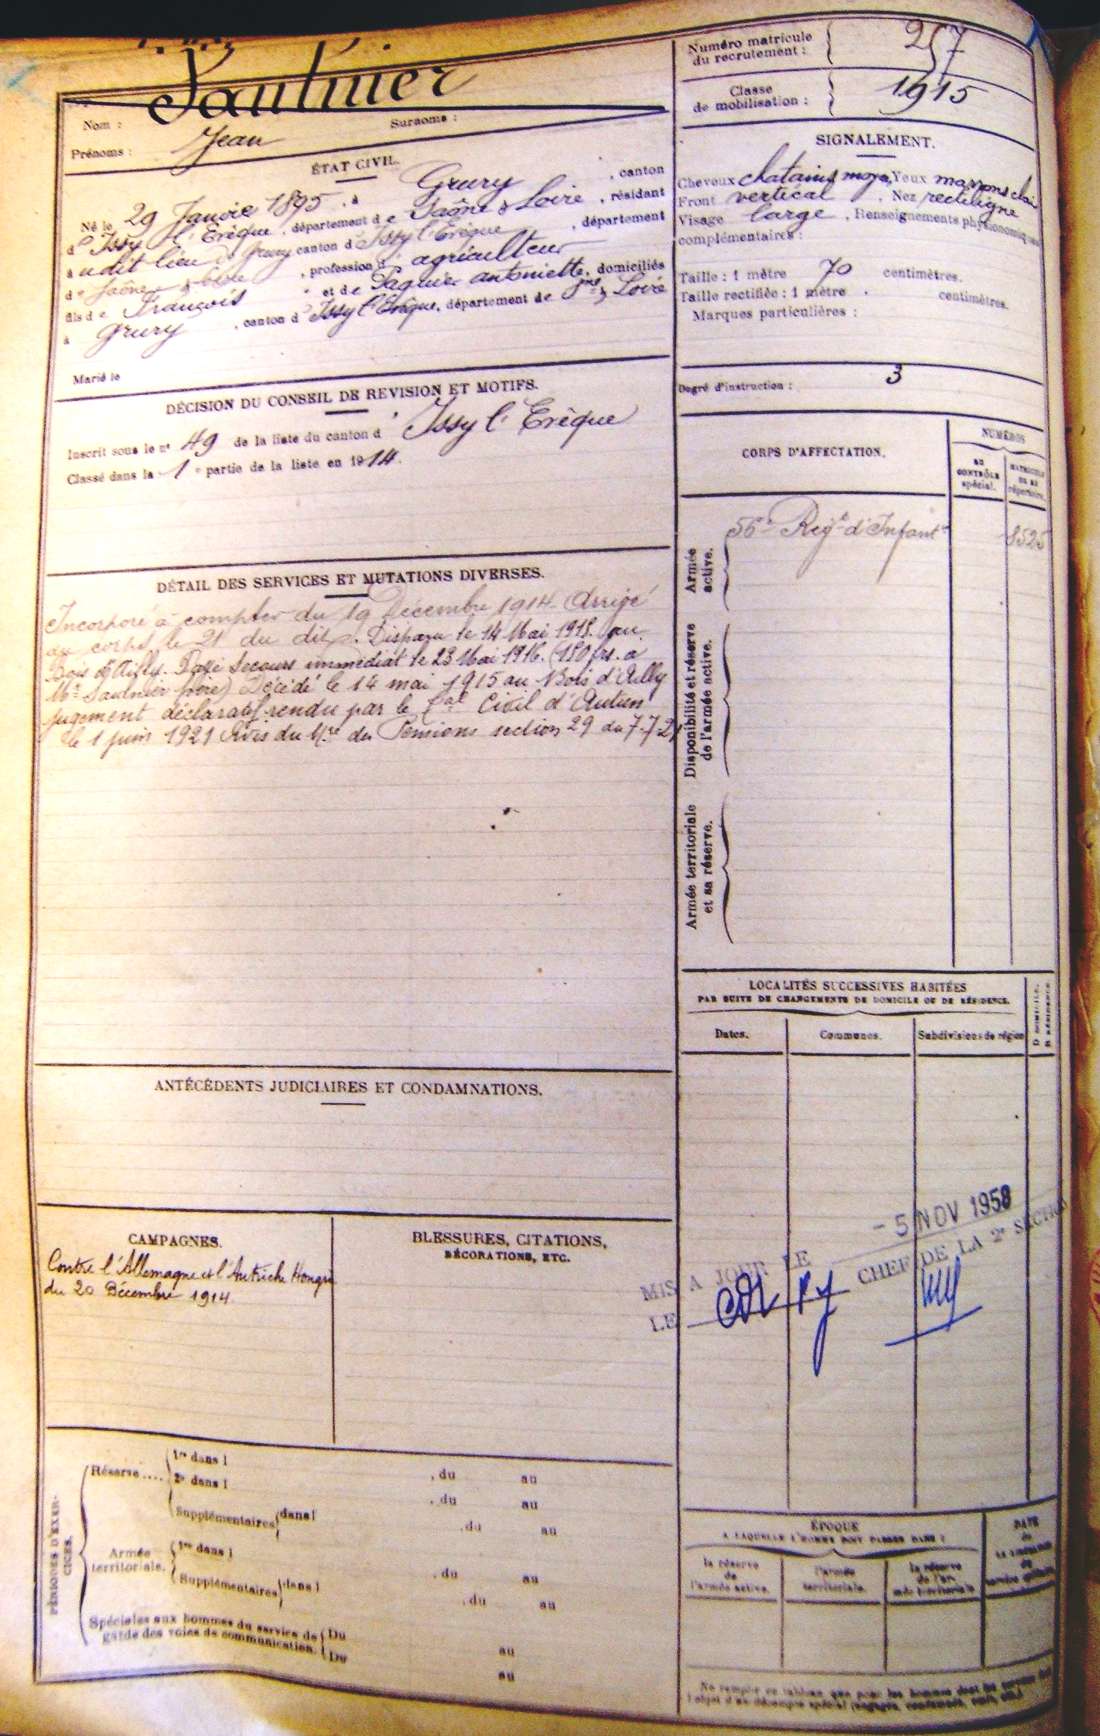 Saulnier
Nom :
Surnoms :
Prénoms : Jean
ÉTAT CIVIL.
Né le 29 Janvie 1895, à Grury, canton
d' Issy l'Evêque, département de Saône & Loire, résidant
à udit lieu de Grury canton d' Issy l'Evêque, département
de Saône & Loire, profession d' agriculteur
fils de François et de Paquier antoniette, domiciliés
à Grury, canton d' Issy l'Evêque, département de Sne & Loire
Marié le
DÉCISION DU CONSEIL DE REVISION ET MOTIFS.
Inscrit sous le n° 49 de la liste du canton d' Issy l'Evêque
Classé dans la 1e partie de la liste en 1914.
DÉTAIL DES SERVICES ET MUTATIONS DIVERSES.
Incorporé à compter du 19 Décembre 1914. Arrivé
au corps le 21 du dit. Disparu le 14 Mai 1915 au
Bois d'Ailly. Payé Secours immédiat le 23 Mai 1916. (150 frs. a
Mr Saulnier père) Décédé le 14 mai 1915 au Bois d'Ailly
jugement déclaratif rendu par le Tal Civil d'Autun
le 1 juin 1921 Avis du Mre des Pensions section 29 du 7-7-21
ANTÉCÉDENTS JUDICIAIRES ET CONDAMNATIONS.
CAMPAGNES.
Contre l'Allemagne et l'Autriche Hongrie
du 20 Décembre 1914.
BLESSURES, CITATIONS,
DÉCORATIONS, ETC.
PÉRIODES D'EXER-
CICES.
Réserve....
1re dans l , du au
2e dans l , du au
Supplémentaires dans l , du au
Armée
territoriale.
1re dans l , du au
Supplémentaires dans l , du au
Spéciales aux hommes du service de
garde des voies de communication.
Du au
Du au
Numéro matricule
du recrutement : 257
Classe
de mobilisation : 1915
SIGNALEMENT.
Cheveux chatains moye, Yeux marrons clair
Front vertical, Nez rectiligne
Visage large, Renseignements physionomiques
complémentaires :
Taille : 1 mètre 70 centimètres.
Taille rectifiée : 1 mètre centimètres.
Marques particulières :
Degré d'instruction : 3
CORPS D'AFFECTATION.
NUMÉROS
AU
CONTRÔLE
spécial.
MATRICULE
OU AU
répertoire.
Armée
active.
56e Regt d'Infantie
8525
Disponibilité et réserve
de l'armée active.
Armée territoriale
et sa réserve.
LOCALITÉS SUCCESSIVES HABITÉES
PAR SUITE DE CHANGEMENTS DE DOMICILE OU DE RÉSIDENCE.
Dates.
Communes.
Subdivisions de région
D. DOMICILE.
R. RÉSIDENCE.
- 5 NOV 1958
MIS A JOUR LE
LE
CHEF DE LA 2e SECTION
ÉPOQUE
A LAQUELLE L'HOMME DOIT PASSER DANS :
la réserve
de
l'armée active.
l'armée
territoriale.
la réserve
de l'ar-
mée territoriale.
DATE
de
LA LIBÉRATION
du
service militaire.
Ne remplir ce tableau que pour les hommes dont les
l'objet d'un décompte spécial (engagés,